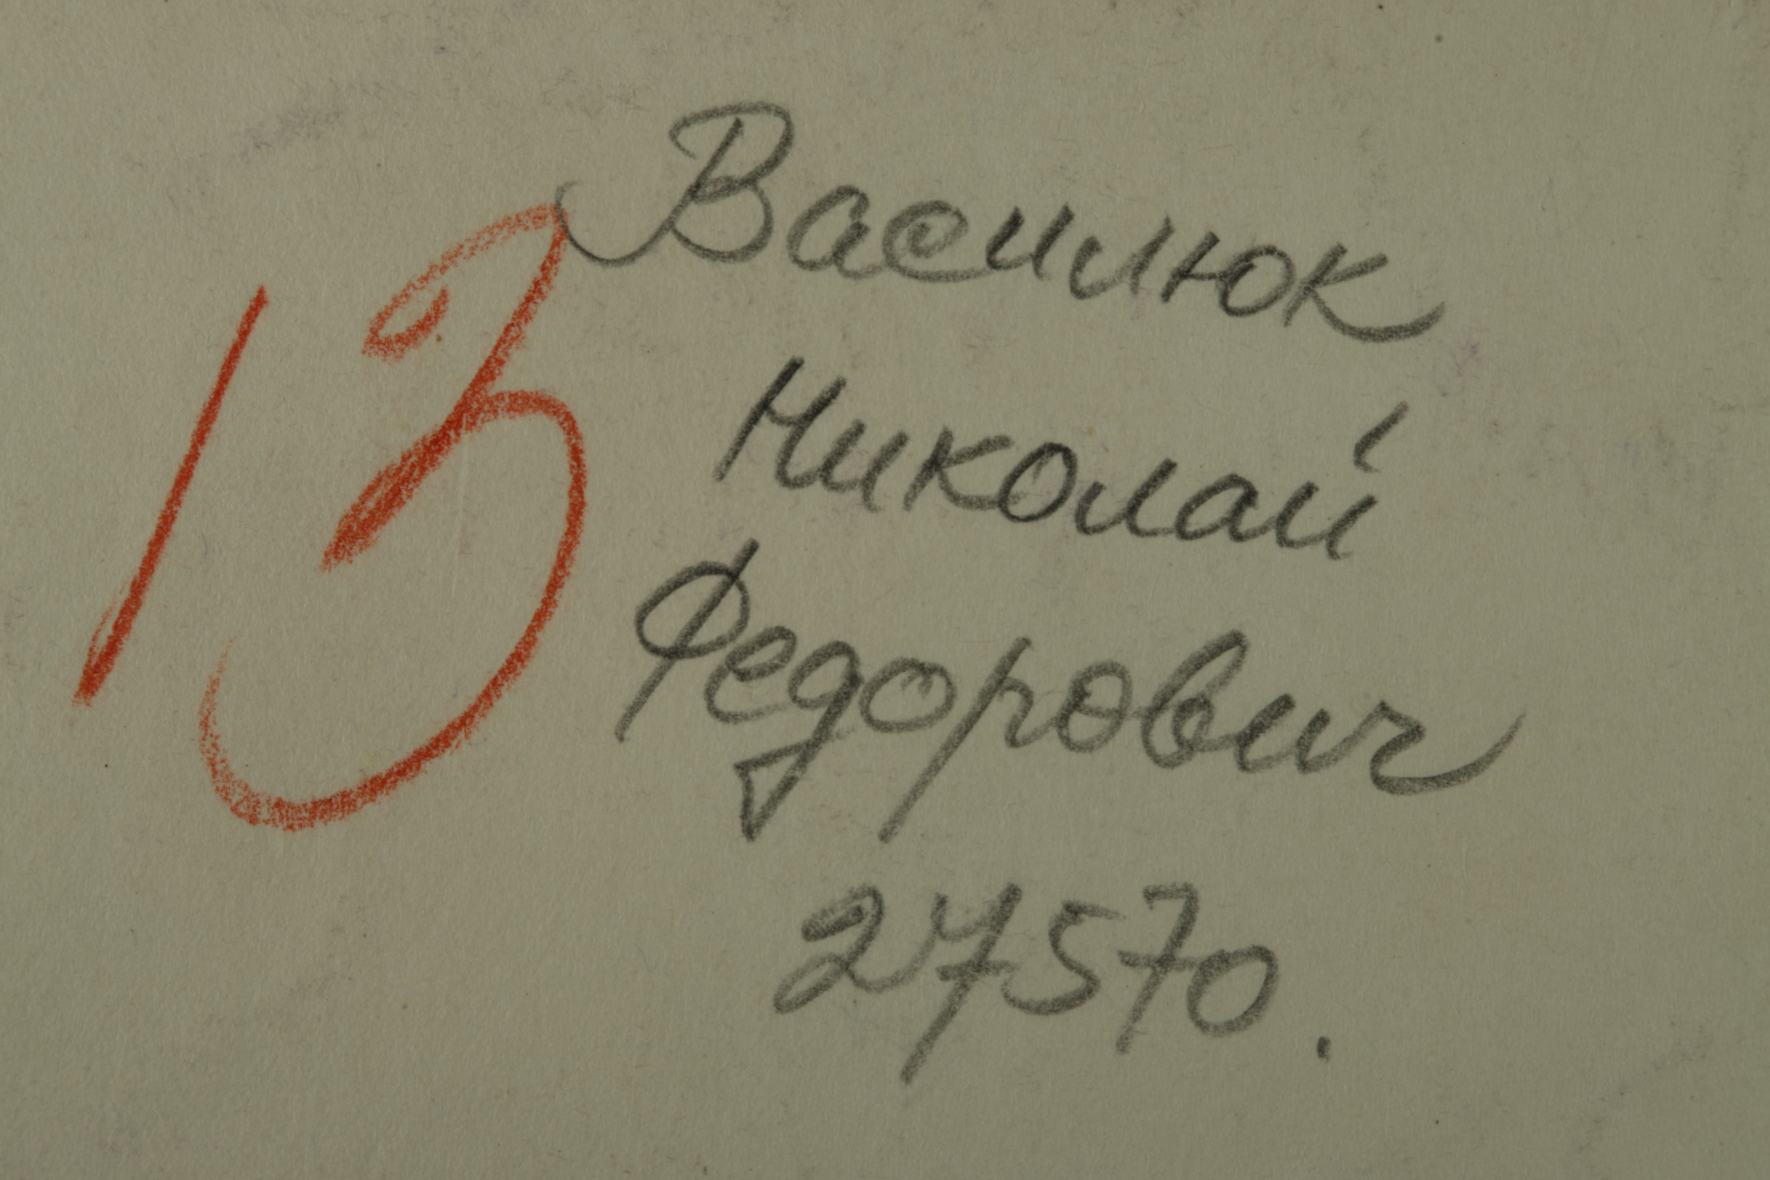 13
Василюк
Николай
Федорович
27570.